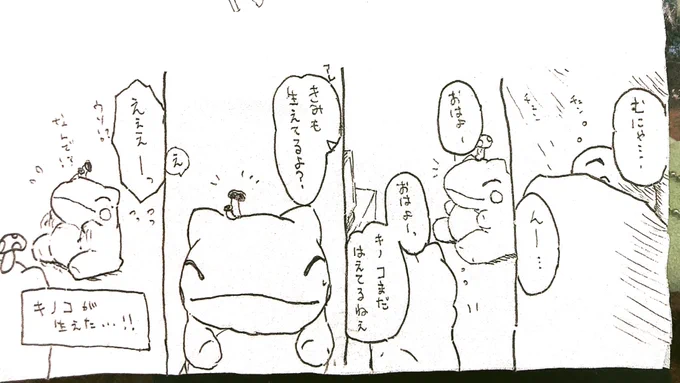 むにゃ…‥
チュン
チュン
んー…
おはよー
おはよー、
キノコまだ
はえてるねぇ
きみも
生えてるよ？
え
えぇぇーっ
ウソ!?
なんで!?
キノコが
生えた…!!